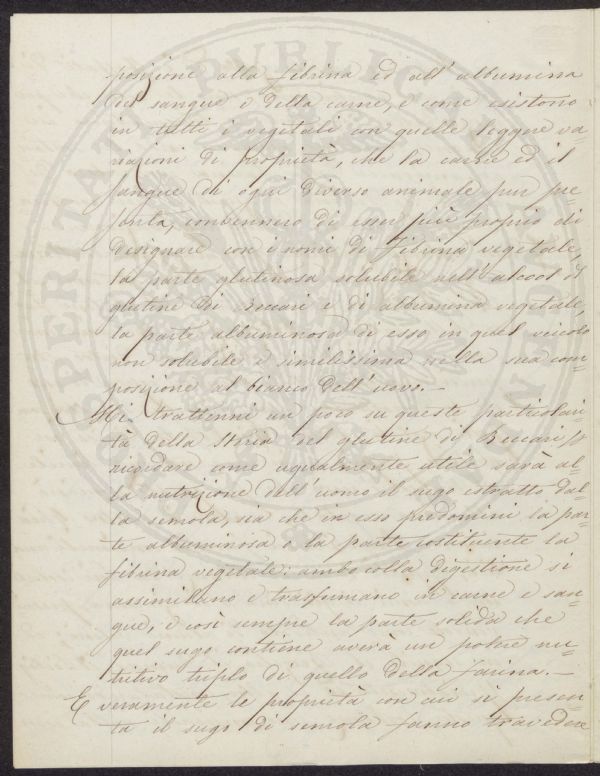 posizione alla fibrina ed all'albumina
del sangue e della carne, e come esistono
in tutti i vegetali con quelle leggere va=
riazioni di proprietà, che la carne ed il
sangue di ogni diverso animale pur pre=
senta, convennero di esser più proprio di
designare con i nomi di Fibrina vegetale,
la parte glutinosa solubile nell'alcool del
glutine di Beccari e di albumina vegetale,
la parte albuminosa di esso in quel veicolo
non solubile e similissima nella sua com=
posizione al bianco dell'uovo. —
Mi trattenni un poco su queste particolari=
tà della storia del glutine di Beccari p
ricordare come ugualmente utile sarà al=
la nutrizione dell'uomo il sugo estratto dal=
la semola, sia che in esso predomini la par=
te albuminosa o la parte costituente la
fibrina vegetale: ambo colla digestione si
assimilano e trasfumano in carne e san=
gue, e così sempre la parte solida che
quel sugo contiene averà un potere nu=
tritivo triplo di quello della farina. —
E veramente le proprietà con cui si presen=
ta il sugo di semola fanno travedere
PROSPERITATI PUBLICAE